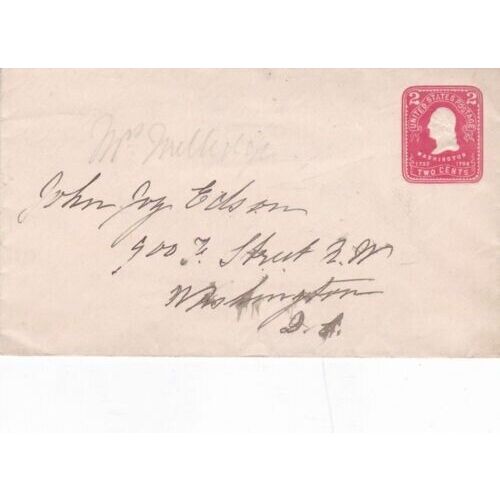 2 2
UNITED STATES POSTAGE
WASHINGTON
1732 1799
TWO CENTS
Mrs
John Joy Edson
900 F. Street N.W
Washington
D.C.